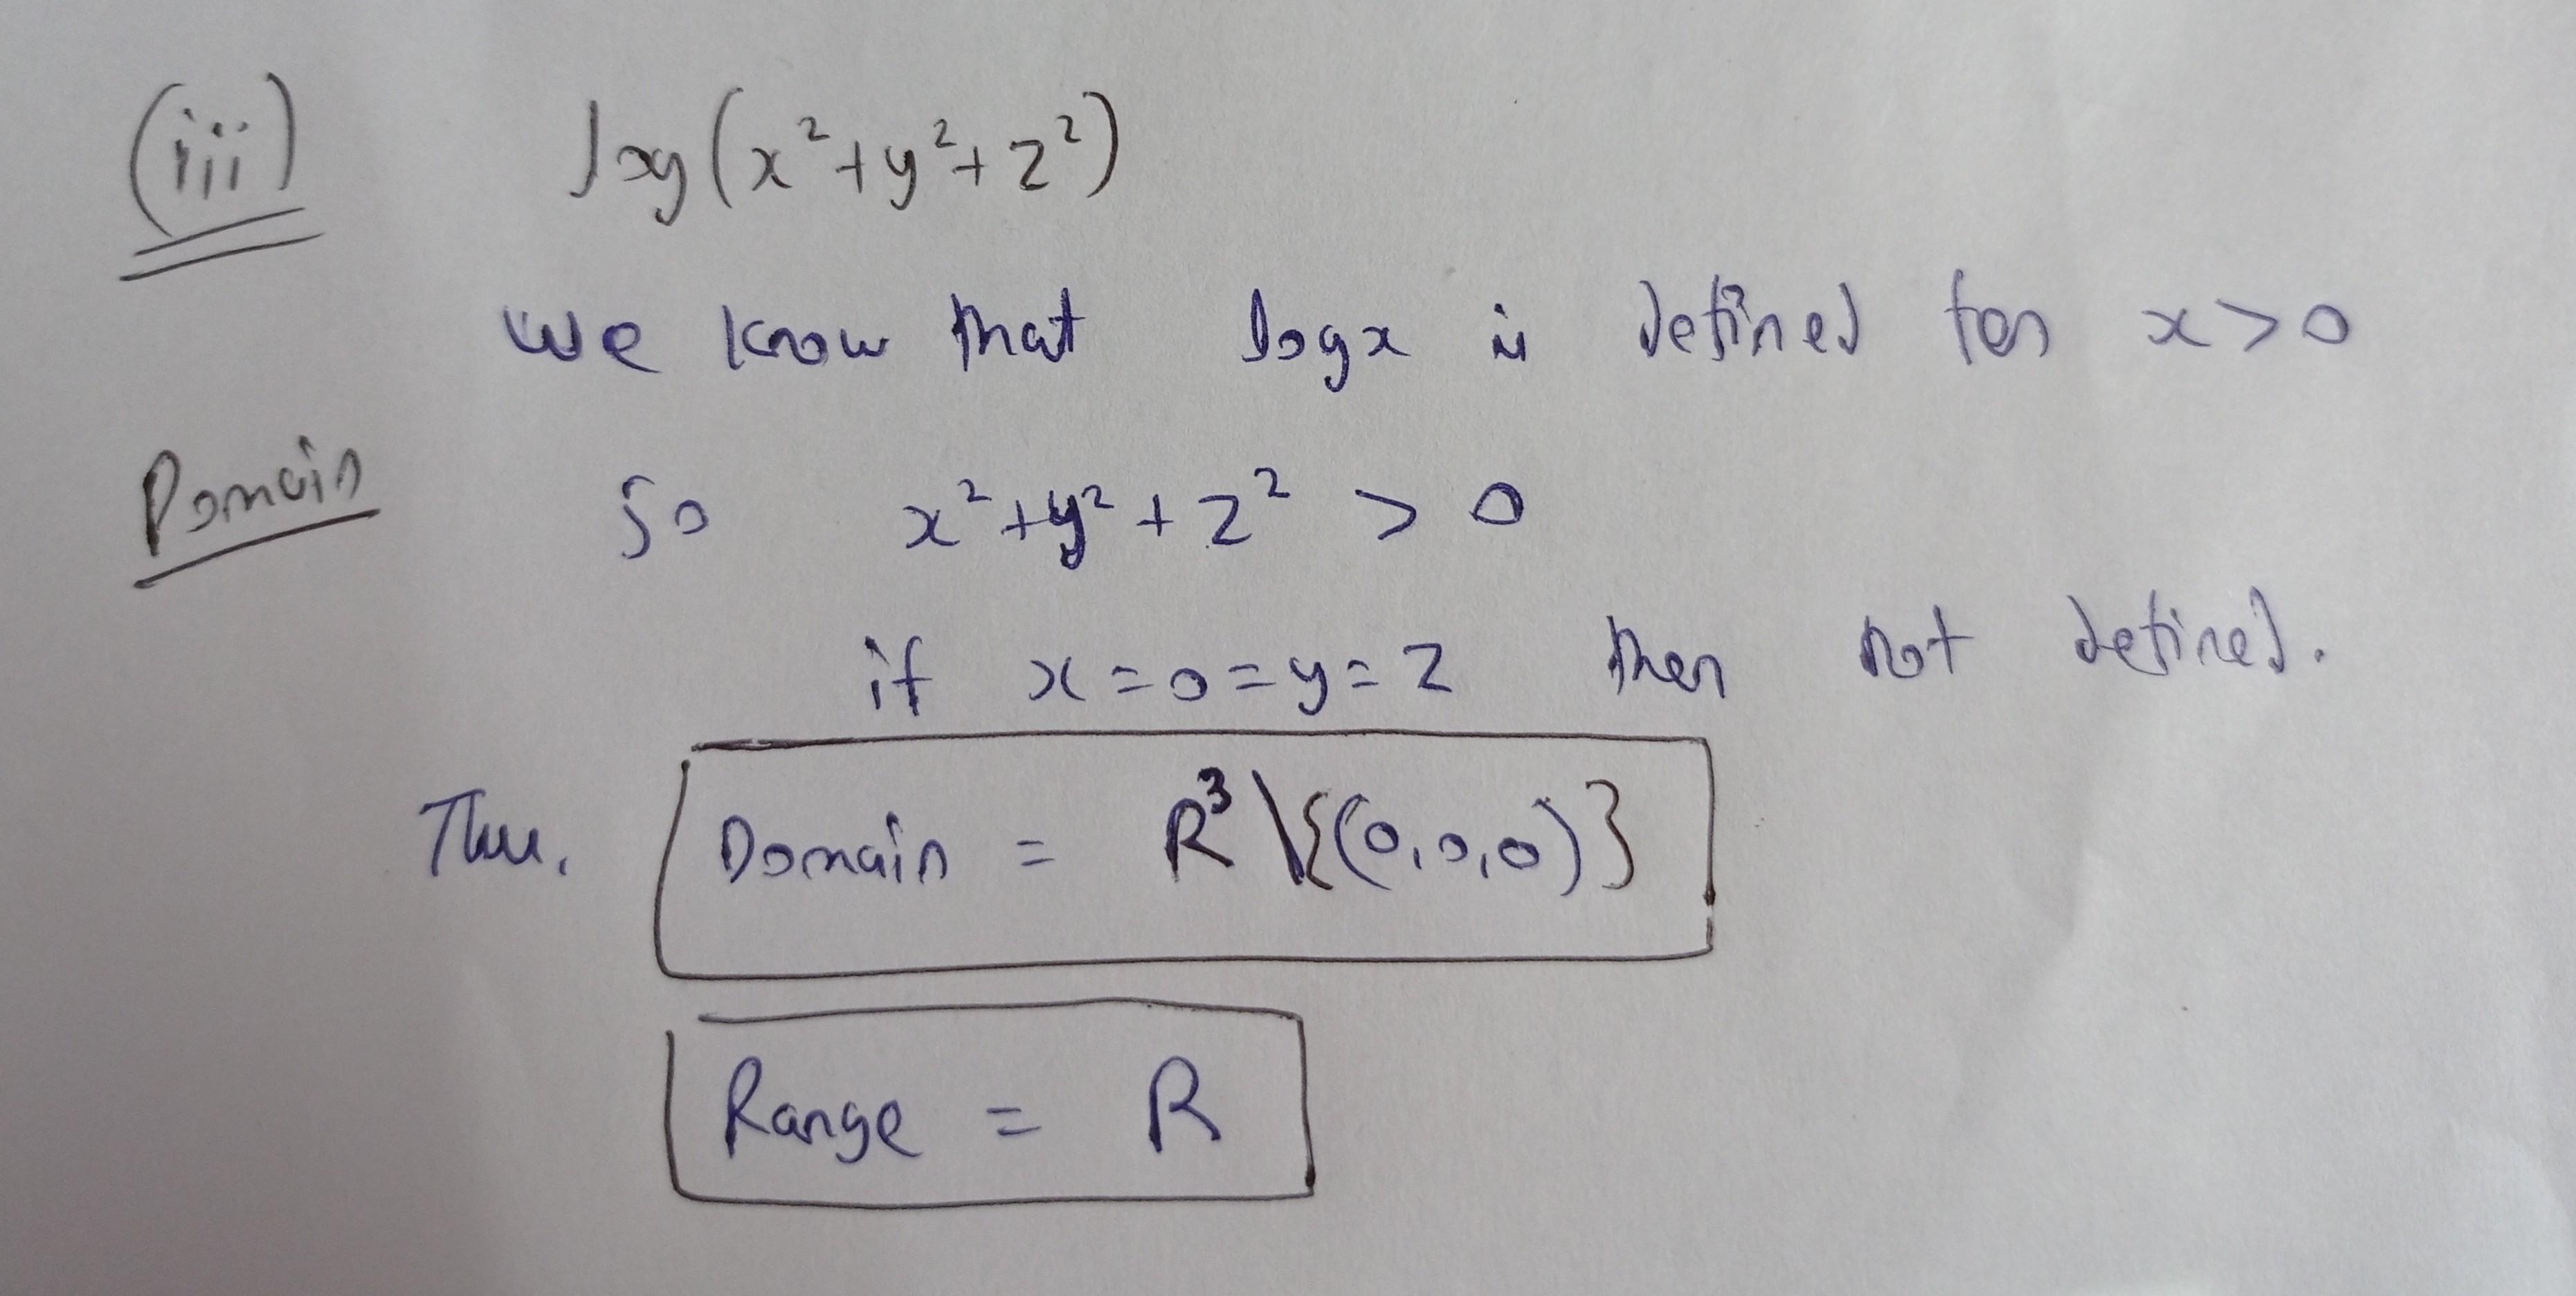 (iii) log(x²+y²+z²)
we know that log x is defined for x>0
Domain So x²+y²+z² > 0
if x=0=y=z then not defined.
Thus. Domain = R³\{(0,0,0)}
Range = R